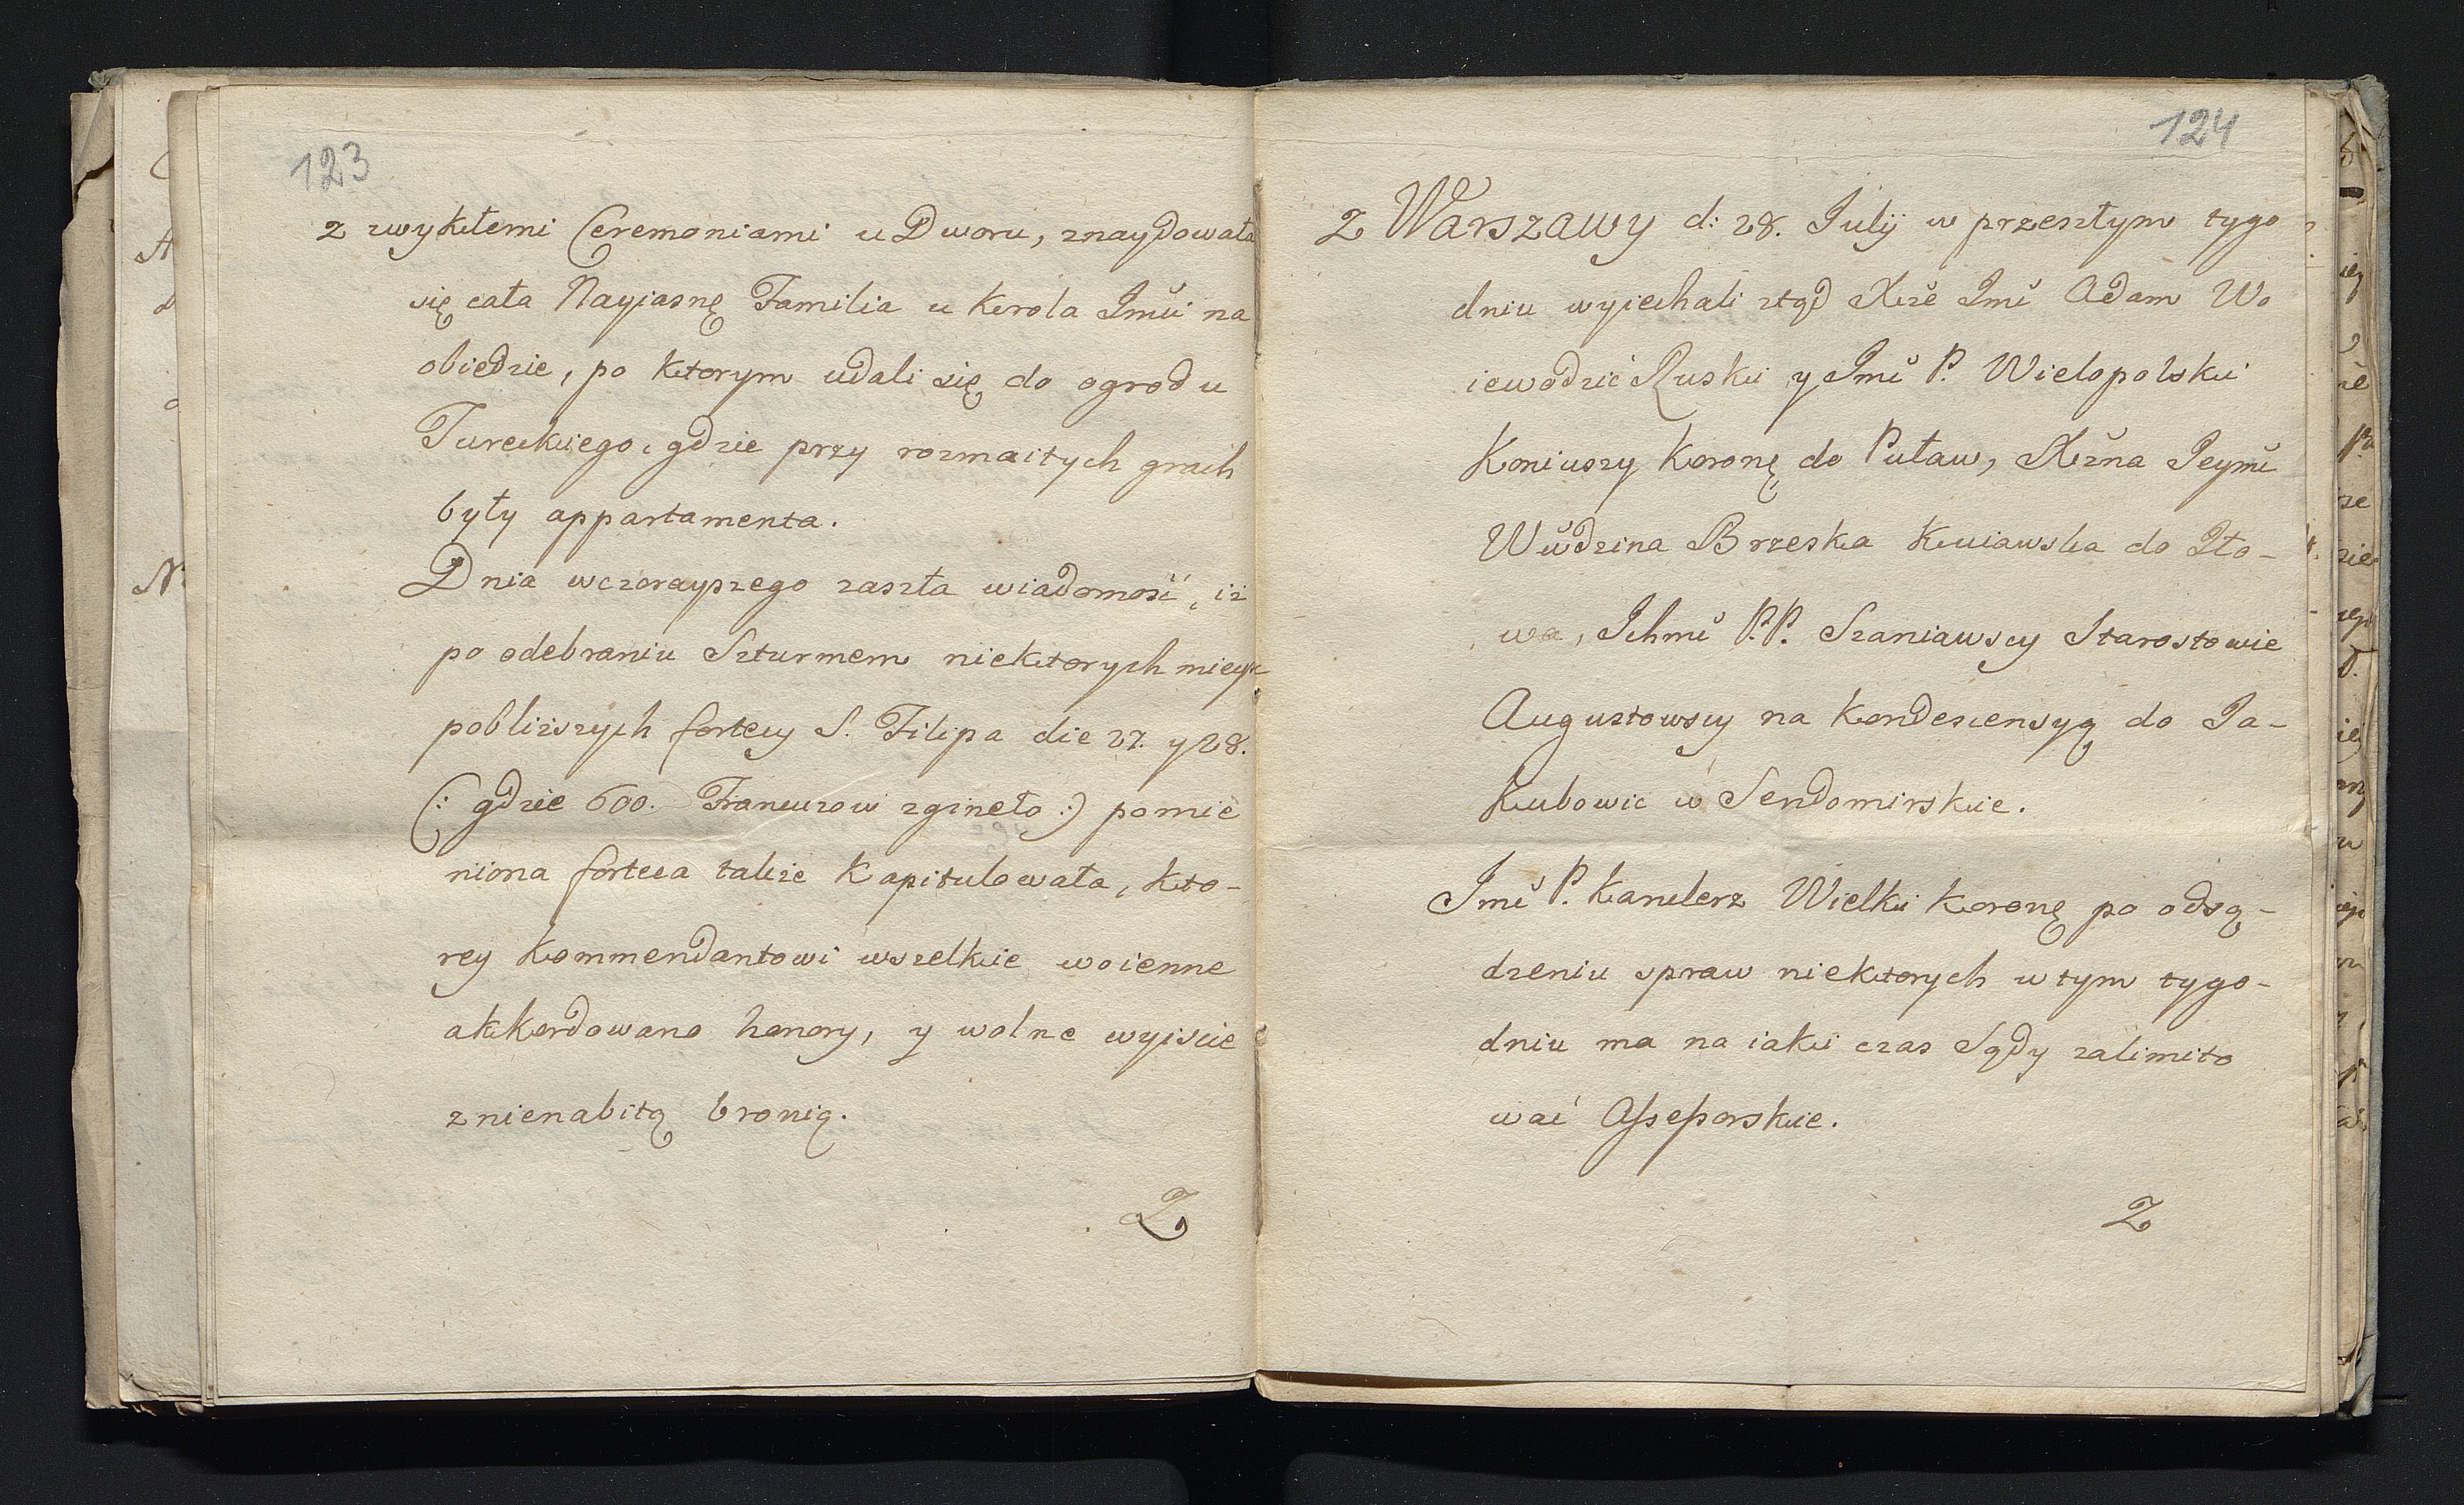 123
z zwykłemi Ceremoniami u Dworu, znaydowała
się cała Nayjasnę Familia u Krola Jmći na
obiedzie, po ktorym udali się do ogrodu
Tureckiego, gdzie przy rozmaitych grach
były appartamenta.
Dnia wczorayszego zaszła wiadomość, iż
po odebraniu Szturmem niektorych mieysc
pobliższych fortecy S. Filipa die 27. y 28.
(: gdzie 600. Francuzow zgineło :) pomie
niiona forteca także Kapitulowała, kto-
rey Kommendantowi wszelkie woienne
akkordowano honory, y wolne wyiscie
z nienabitą bronią.
Z
124
Z Warszawy d: 28. Julij w przeszłym tygo
dniu wyiechali ztąd Xże Jmć Adam Wo
iewodzic Ruski y Jmć P. Wielopolski
Koniuszy Koronę do Puław, Xżna Jeymć
Wwdzina Brzeska Kuiawska do Iło-
wa, Ichmć P.P. Szaniawscy Starostowie
Augustowscy na Kondescensyą do Ja-
kubowic w Sendomirskie.
Jmć P. Kanclerz Wielki Koronę po odsą-
dzeniu spraw niektorych w tym tygo-
dniu ma na iaki czas Sądy zalimito
wać Assessorskie.
Z